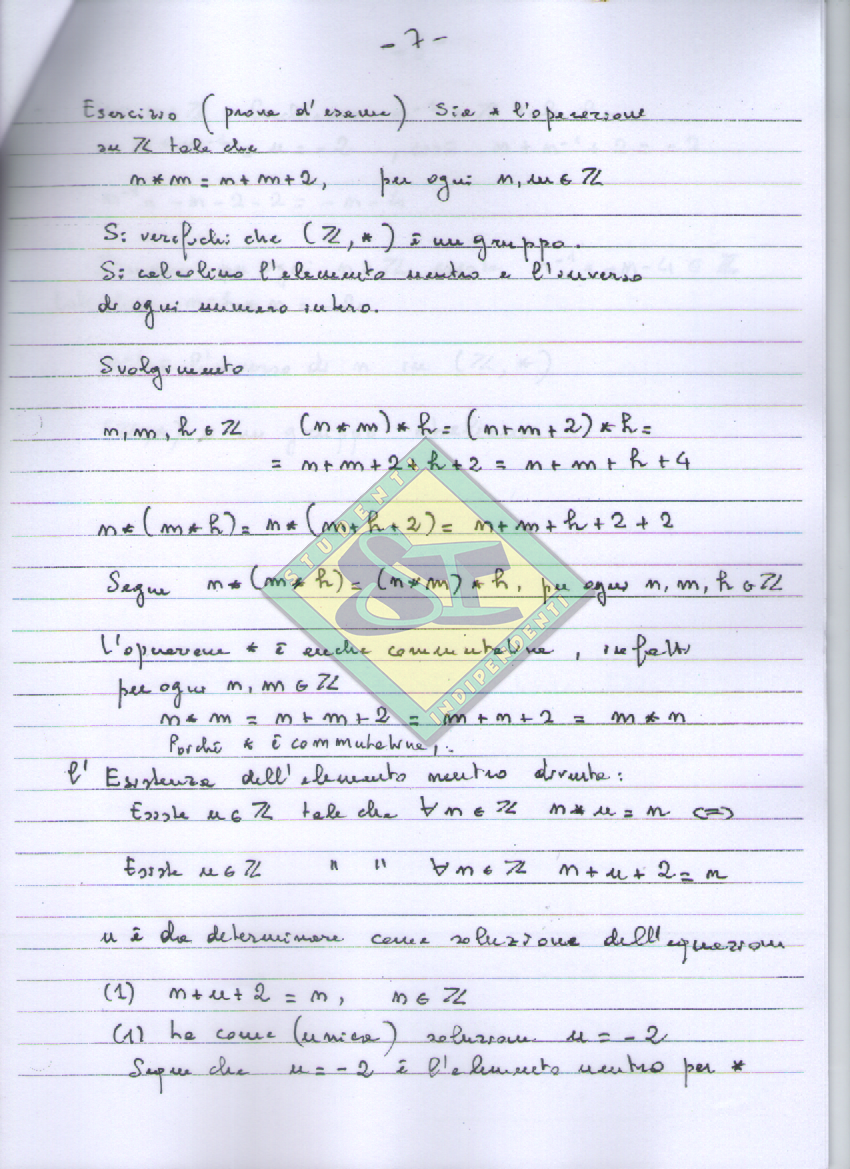 - 7 -
Esercizio (prova d'esame) Sia * l'operazione
su ℤ tale che
n * m = n + m + 2, per ogni n, m ∈ ℤ
Si verifichi che (ℤ, *) è un gruppo.
Si calcolino l'elemento neutro e l'inverso
di ogni numero intero.
Svolgimento
n, m, h ∈ ℤ (n * m) * h = (n + m + 2) * h =
= n + m + 2 + h + 2 = n + m + h + 4
n * (m * h) = n * (m + h + 2) = n + m + h + 2 + 2
Segue n * (m * h) = (n * m) * h, per ogni n, m, h ∈ ℤ
L'operazione * è anche commutativa, infatti
per ogni n, m ∈ ℤ
n * m = n + m + 2 = m + n + 2 = m * n
Poiché * è commutativa,
l' Esistenza dell'elemento neutro diventa:
Esiste u ∈ ℤ tale che ∀ n ∈ ℤ n * u = n <=>
Esiste u ∈ ℤ " " ∀ n ∈ ℤ n + u + 2 = n
u è da determinare come soluzione dell'equazione
(1) n + u + 2 = n, n ∈ ℤ
(1) ha come (unica) soluzione u = -2
Segue che u = -2 è l'elemento neutro per *
STUDENTI
SI
INDIPENDENTI